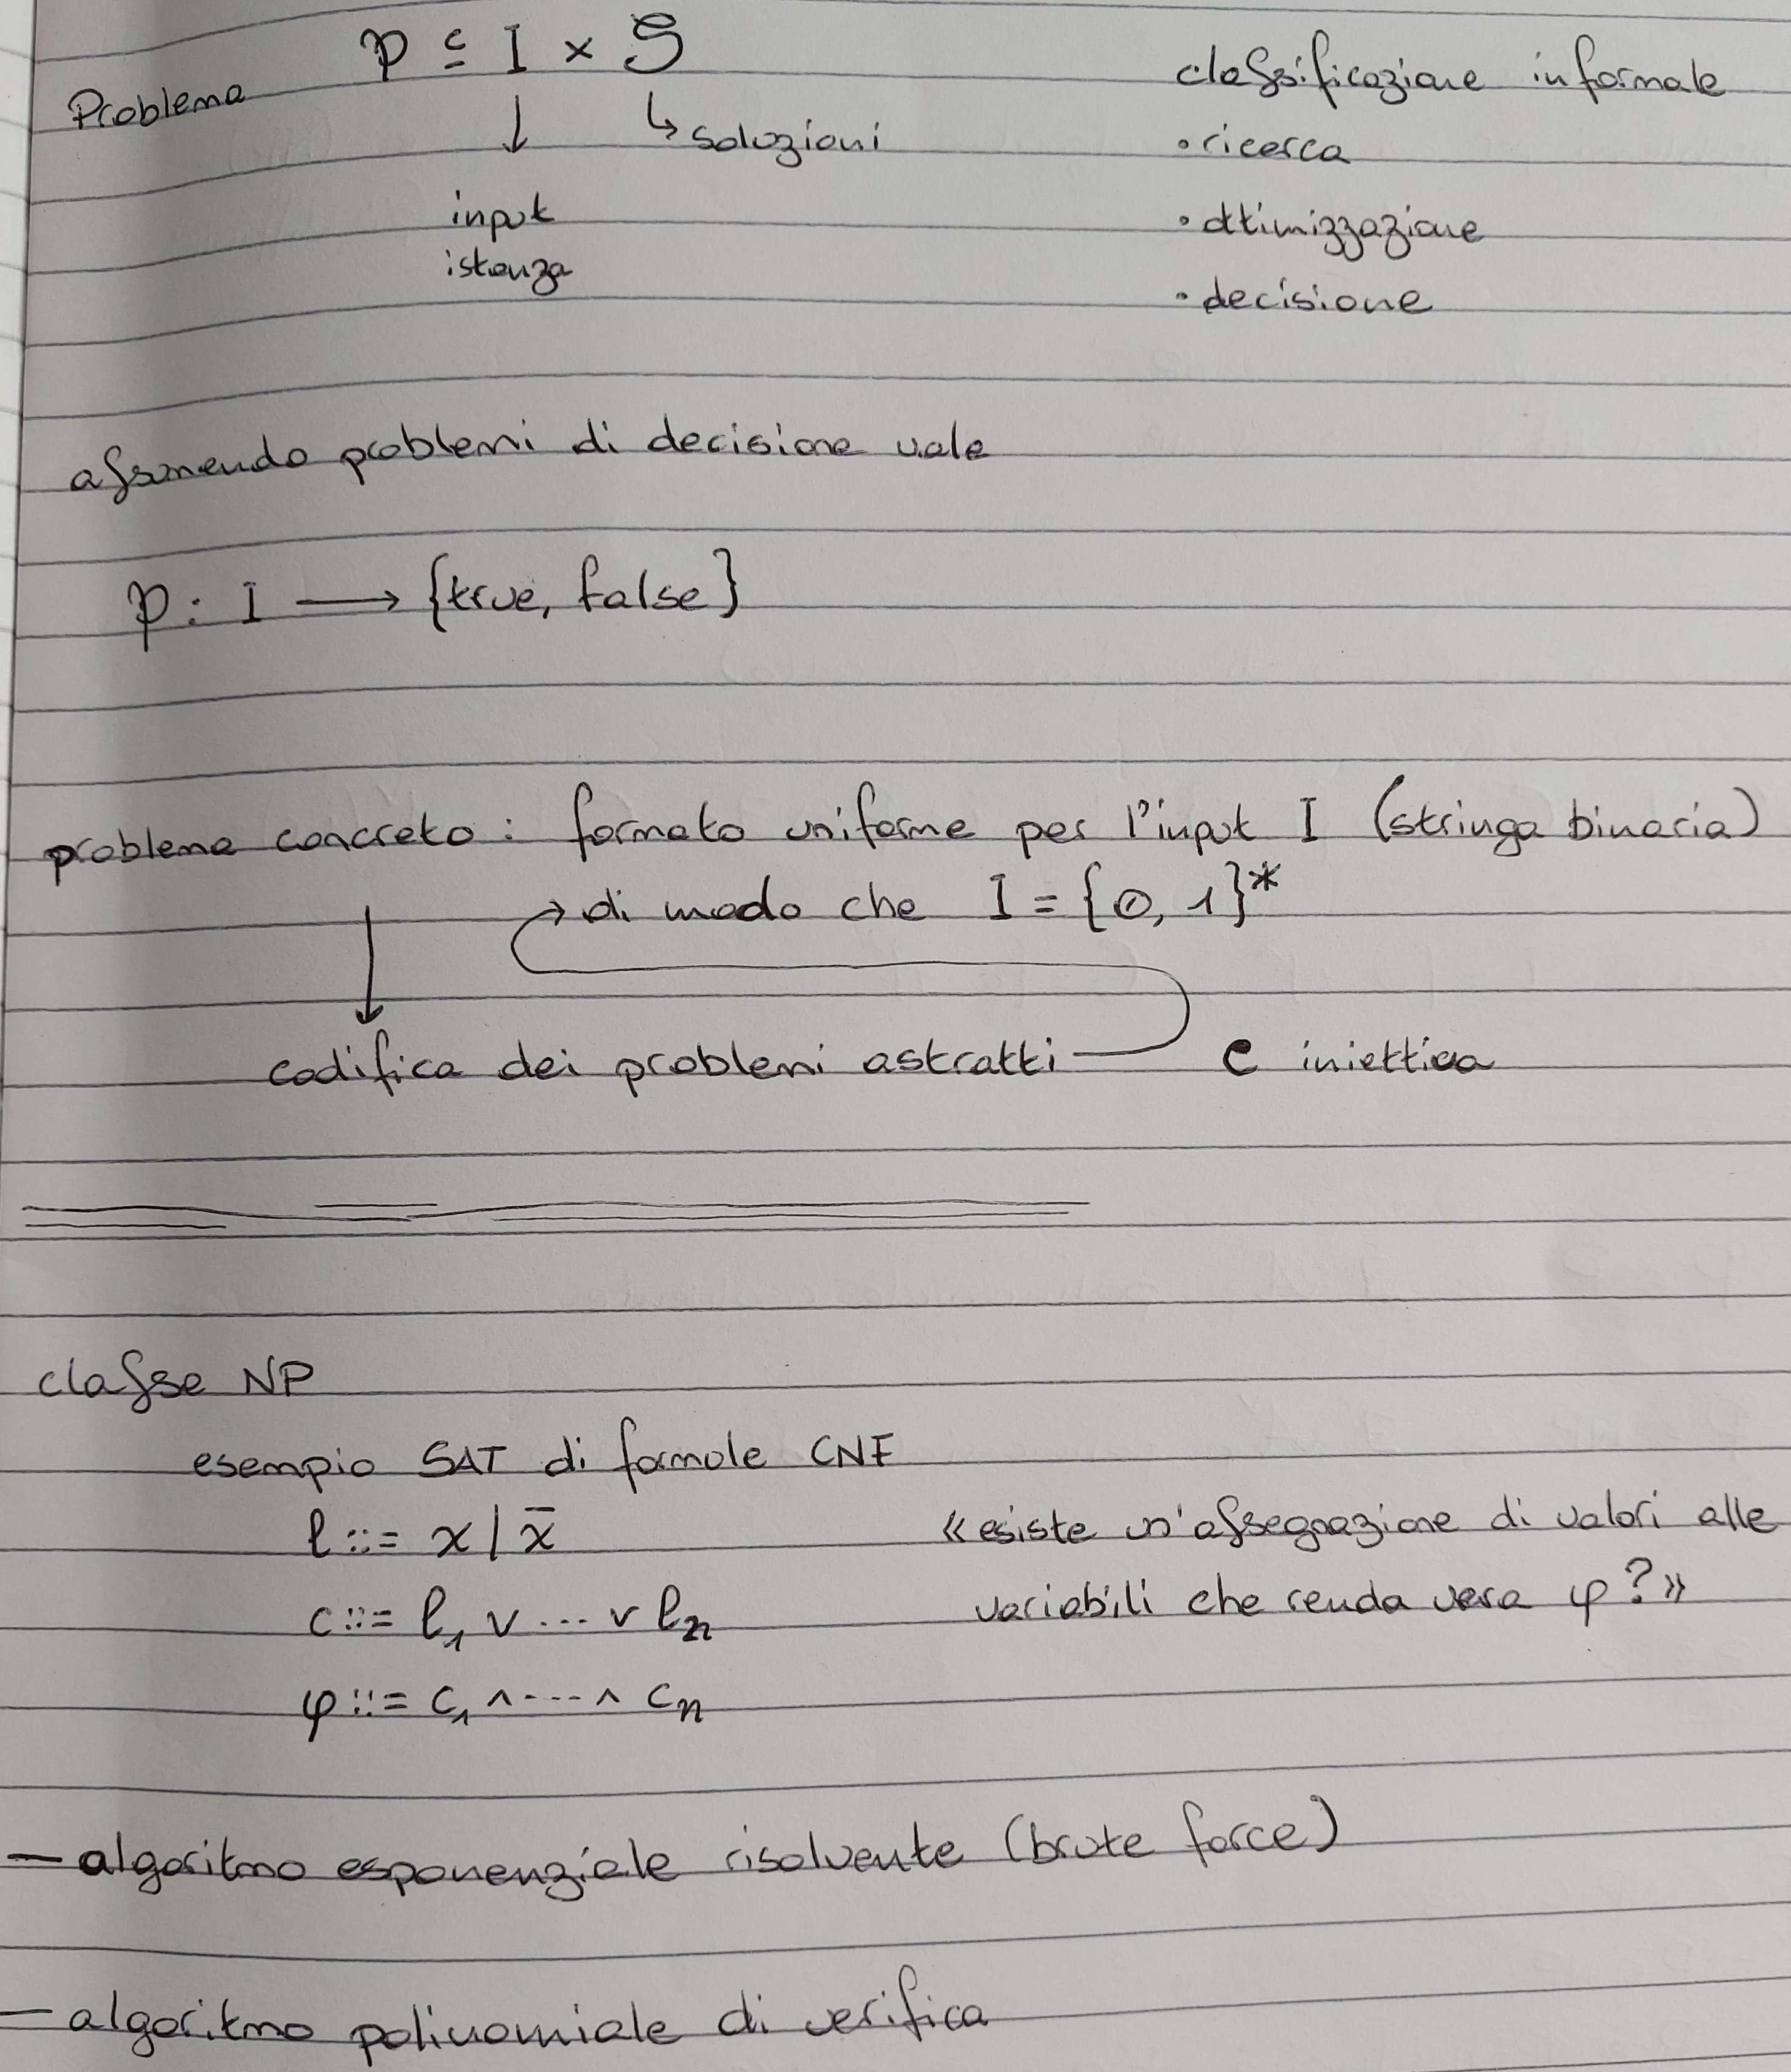 P ⊆ I × S
Problema
↳ soluzioni
input
istanza
classificazione informale
• ricerca
• ottimizzazione
• decisione
assumendo problemi di decisione vale
P : I ⟶ {true, false}
problema concreto : formato uniforme per l'input I (stringa binaria)
→ di modo che I = {0, 1}*
codifica dei problemi astratti
C iniettiva
classe NP
esempio SAT di formule CNF
ℓ ::= x | x̄
c ::= ℓ₁ ∨ ... ∨ ℓₙ
φ ::= c₁ ∧ ---- ∧ cₙ
«esiste un'assegnazione di valori alle
variabili che renda vera φ?»
— algoritmo esponenziale risolvente (brute force)
— algoritmo polinomiale di verifica